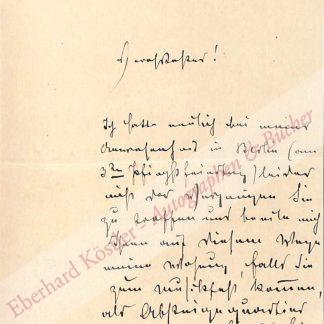 Verehrtester!
Ich hatte neulich bei meiner
Anwesenheit in Berlin (am
3ten Pfingstfeiertag) leider
nicht das Vergnügen Sie
zu treffen und beeile mich
Ihnen auf diesem Wege
meine Wohnung, falls Sie
zum Musikfest kommen,
als Absteigequartier
Eberhard Köstler - Autographen & Bücher